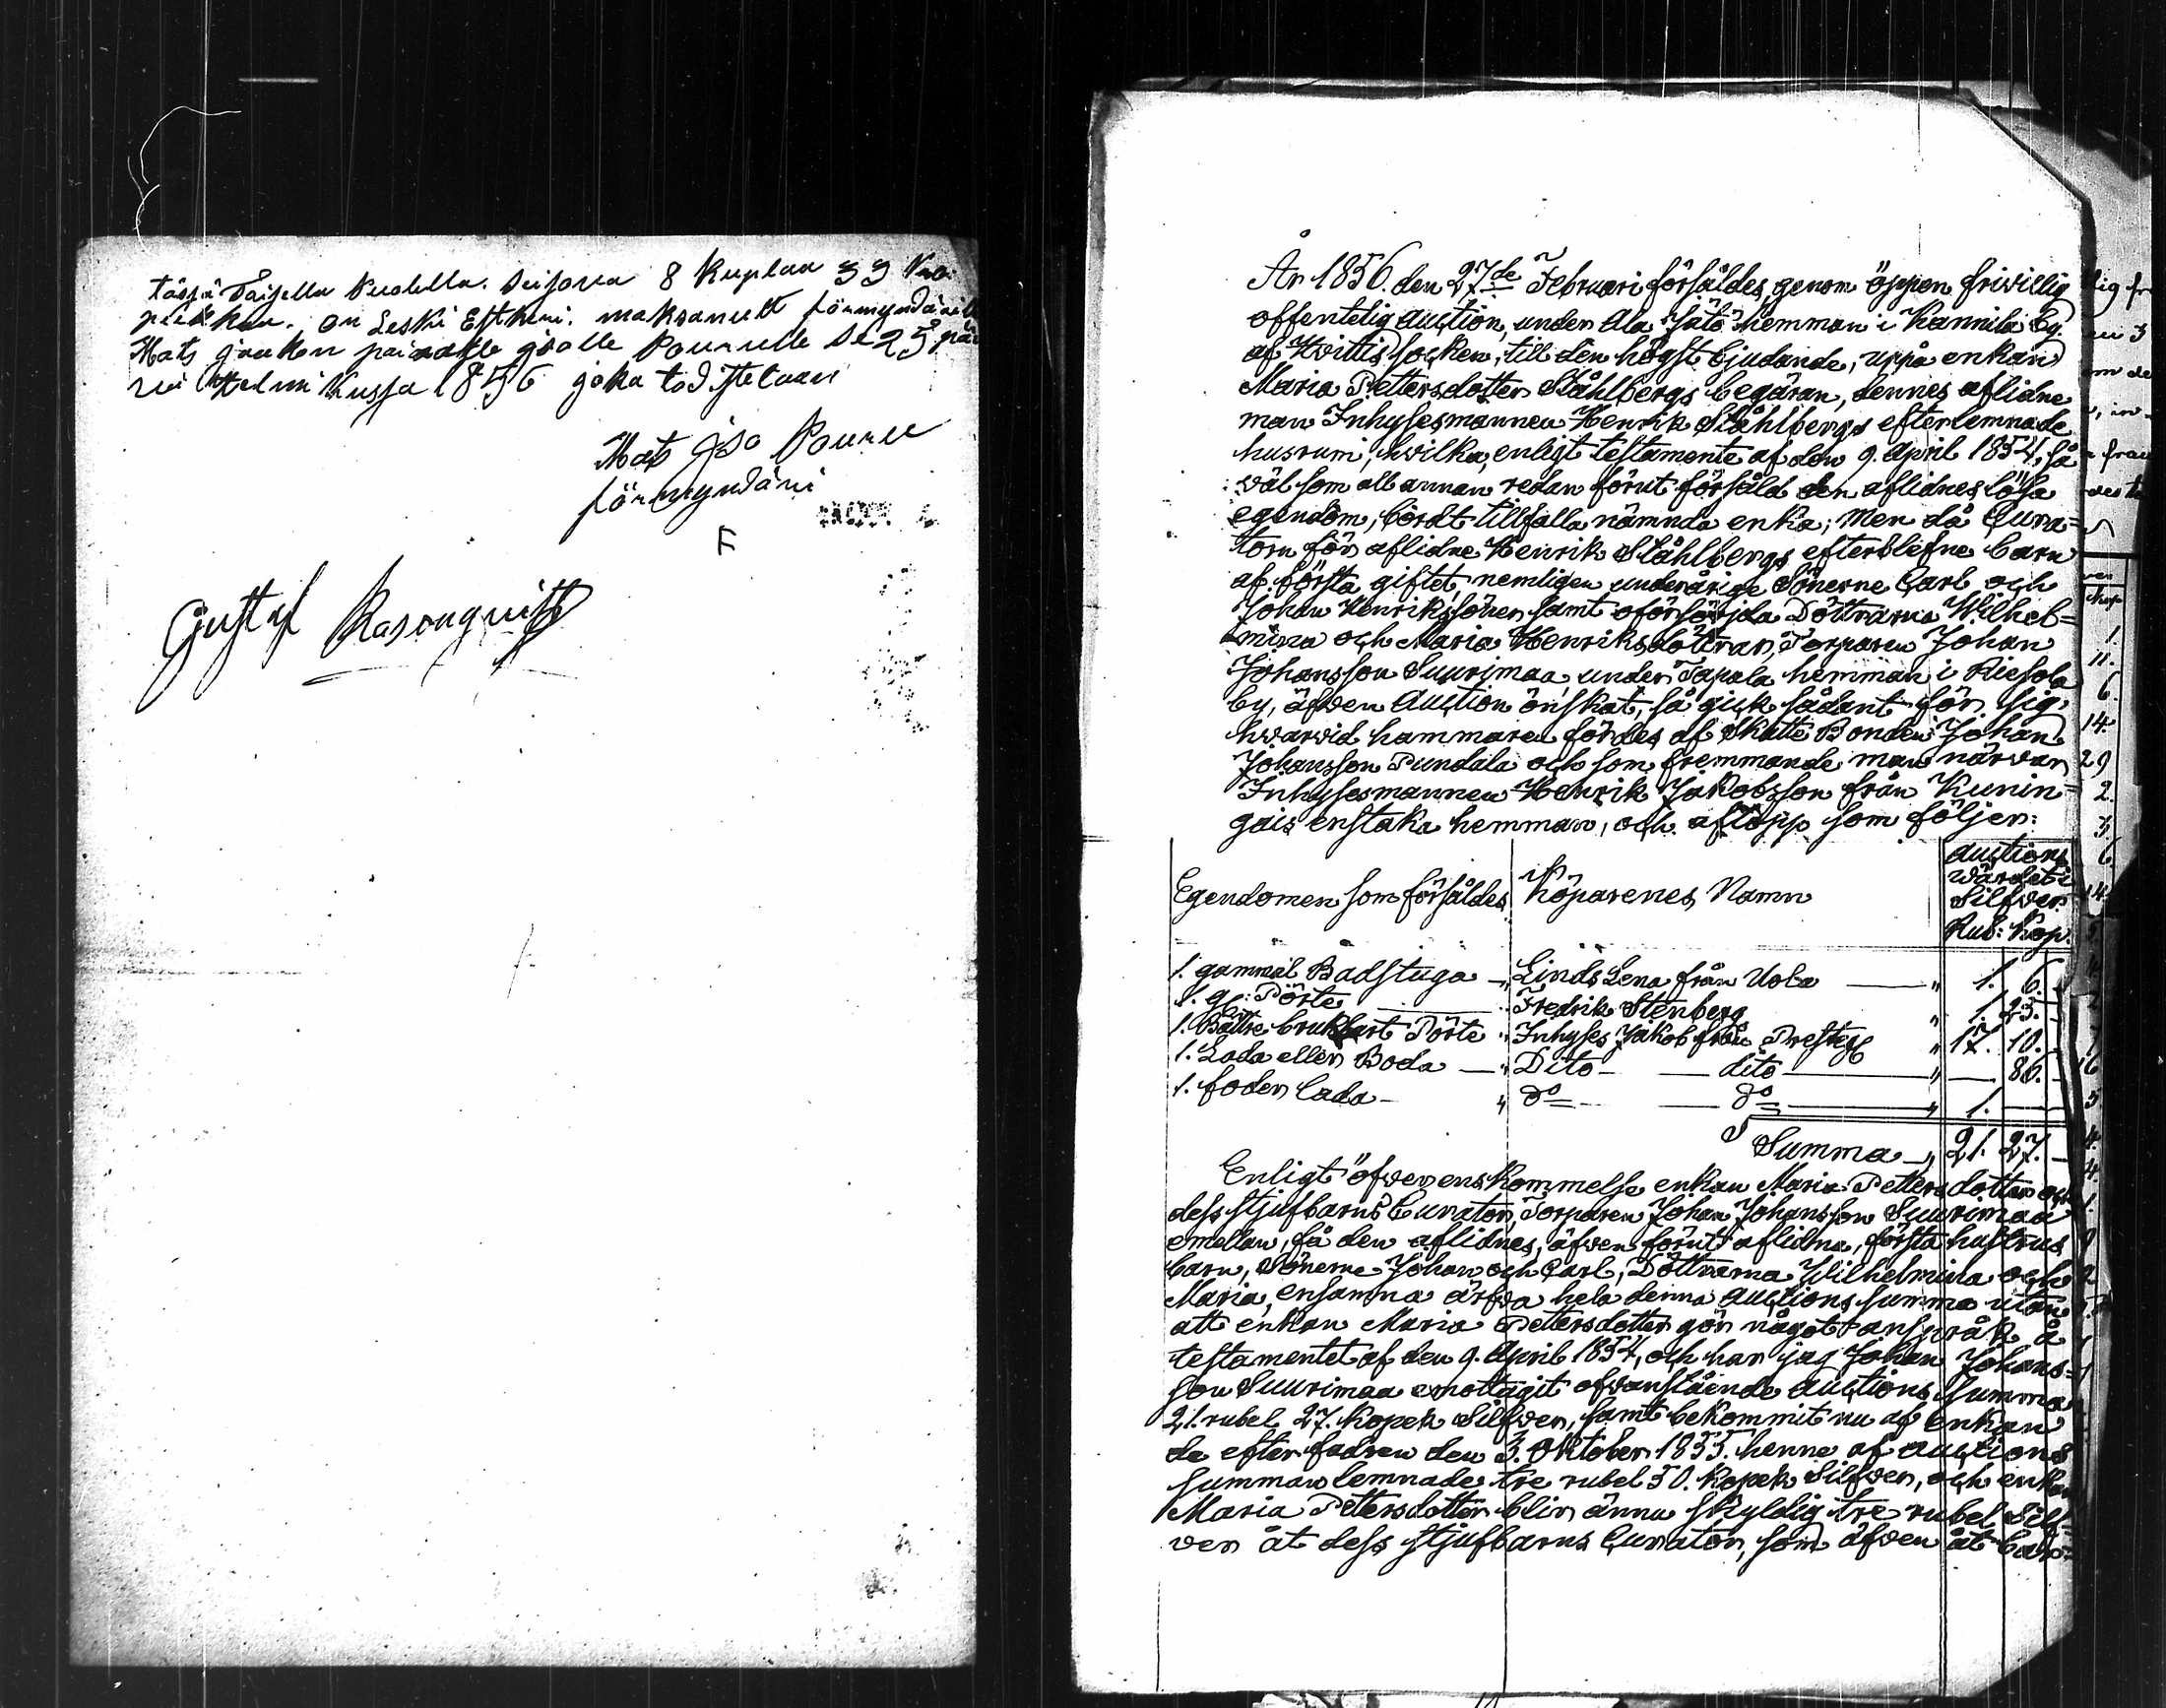 tässä Toisella Puolella. Seisova 8 Ruplaa 33
on Leski Estheri. maksanutt förmyndärille
Mats jsolle Pourulle se 25 päi
1856 joka todistetaan
Mats jso Pouru
förmyndäri
F
Gustaf Rosonquist
År 1856. den 27de Februari försåldes, genom öppen friwillig
offentelig auction, under Ala Jätö hemman i Kannila by
af Hvittis socken, till den högst bjudande, uppå enkan
Maria Pettersdotter Ståhlbergs begäran, dennes aflidne
man Inhysesmannen Henrik Ståhlbergs efterlemnade
husrum, hwilka, enligt testamente af den 9. April 1854, så
wäl som all annan redan förut försåld den aflidnes lösa
egendom, bordt tillfalla nämnda enka; Men då Cura=
torn för aflidne Henrik Ståhlbergs efterblefne barn
af första giftet, nemligen underårige Sönerne Carl och
Johan Henrikssöner, samt oförsörjda Döttrarna Wilhel=
mina och Maria Henriksdöttrar, Torparen Johan
Johansson Suurimaa under Tapala hemman i Riesola
by, äfwen Auction önskat, så gick sådant för sig,
hwarvid hammaren fördes af Skatte Bonden Johan
Johansson Pundala och som fremmande man närwar
Inhysesmannen Henrik Jakobsson från Kunin=
gais enstaka hemman, och aflopp som följer:
Egendomen som försåldes Köparenes Namn auctions
wärdet i
Silfwer
Rub: Kop.
1. gammal Badstuga — Linds Lena från Uola — " 1. 6.
1. gl: Pörte — Fredrik Stenberg " 1. 25.
1. Bättre brukbart Pörte " Inhyses Jakob från Presteg " 17. 10.
1. Lada eller Boda — " Dito — dito — " — 86.
1. foder Lada — " do — do — " 1. —
Summa — " 21. 27.
Enligt öfwerenskommelse enkan Maria Pettersdotter och
dess stjufbarns Curator, Torparen Johan Johansson Suurimaa
emellan, få den aflidnes, äfwen förut aflidna, första hustrus
barn, Sönerne Johan och Carl, Döttrarna Wilhelmina och
Maria, ensamma ärfwa hela denna auctions summa utan
att enkan Maria Pettersdotter gör något anspråk å
testamentet af den 9. April 1854, och har jag Johan Johans=
son Suurimaa emottagit ofwanstående auctions summa
21. rubel 27. Kopek Silfwer, samt bekommit nu af enkan
de efter fadren den 3. Oktober 1855. henne af auctions
summan lemnade tre rubel 50. Kopek Silfwer, och enkan
Maria Pettersdotter blir ännu skyldig tre rubel Silf=
wer åt dess stjufbarns Curator, som äfwen åt bar=